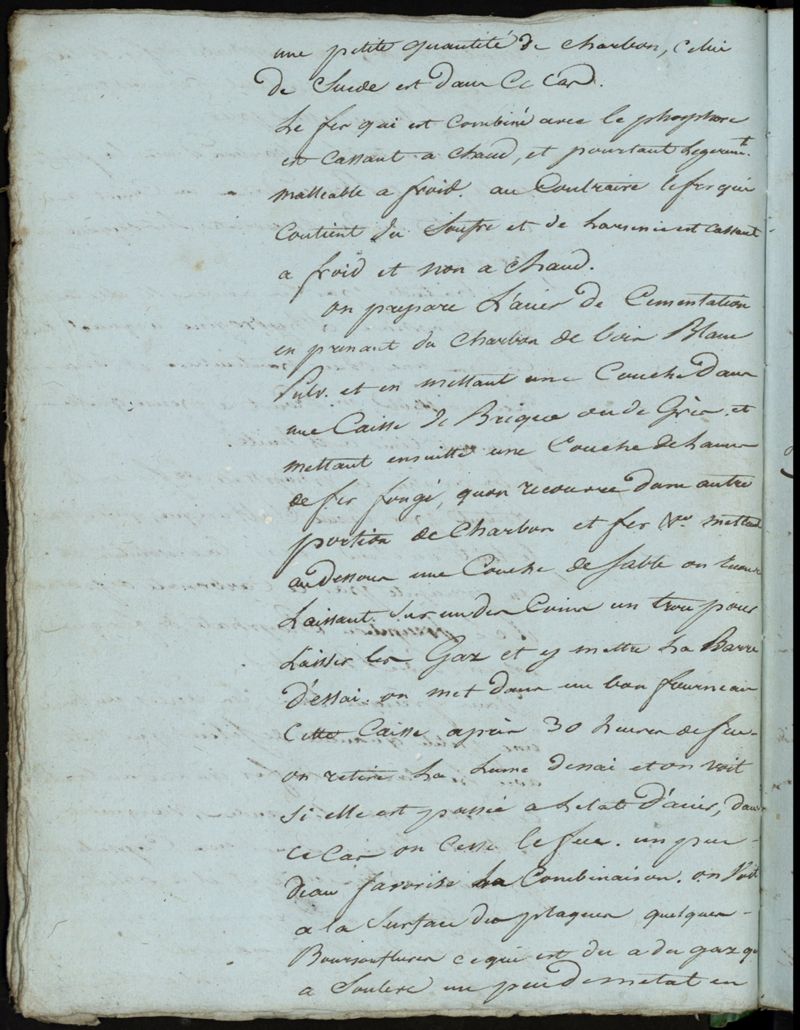 une petite quantité de charbon, celui
de Suede est dans ce cas.
Le fer qui est combiné avec le phosphore
est cassant a chaud, et pourtant legerem.t
malleable a froid. au contraire le fer qui
contient du soufre et de larsenic est cassant
a froid et non a chaud.
on prepare L'acier de Cementation
en prenant du charbon de bois Blanc
pulv. et en mettant une couche dans
une Caisse de Brique ou de Grès et
mettant ensuitte une couche de lames
de fer forgé, quon recouvre dune autre
portion de charbon et fer mettant
au dessous une couche de sable on
laissant sur un des coins un trou pour
laisser les Gaz et y mettre la Barre
d'essai. on met dans un bon fourneau
cette caisse après 30 heures de feu
on retire la lame dessai et on voit
si elle est passée a letat d'acier, dans
ce cas on cesse le feu. un peu
deau favorise la combinaison. on voit
a la surface des plaques quelques
Boursouflures ce qui est du a du gaz qui
a soulevé un peu de metal en